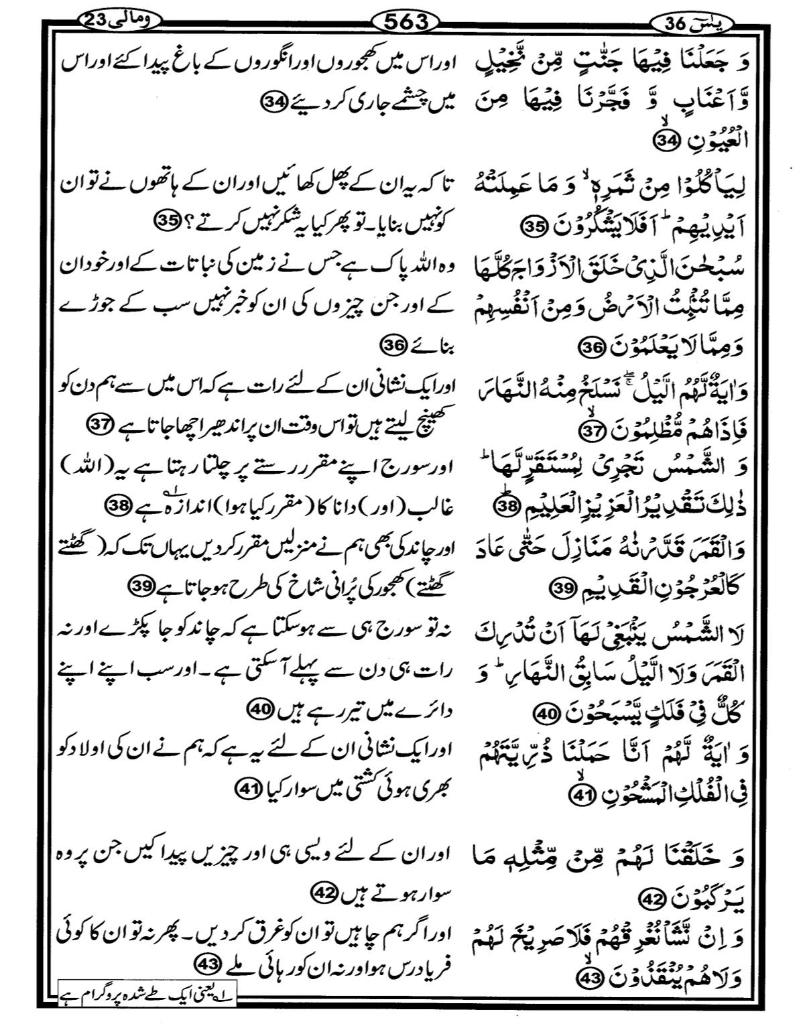 یٰسٓ 36
563
ومالی 23
وَ جَعَلْنَا فِیْهَا جَنّٰتٍ مِّنْ نَّخِیْلٍ
وَّ اَعْنَابٍ وَّ فَجَّرْنَا فِیْهَا مِنَ
الْعُیُوْنِۙ 34
لِیَاْكُلُوْا مِنْ ثَمَرِهٖۙ وَ مَا عَمِلَتْهُ
اَیْدِیْهِمْؕ اَفَلَا یَشْكُرُوْنَ 35
سُبْحٰنَ الَّذِیْ خَلَقَ الْاَزْوَاجَ كُلَّهَا
مِمَّا تُنْۢبِتُ الْاَرْضُ وَ مِنْ اَنْفُسِهِمْ
وَ مِمَّا لَا یَعْلَمُوْنَ 36
وَ اٰیَةٌ لَّهُمُ الَّیْلُ ۚۖ نَسْلَخُ مِنْهُ النَّهَارَ
فَاِذَا هُمْ مُّظْلِمُوْنَۙ 37
وَ الشَّمْسُ تَجْرِیْ لِمُسْتَقَرٍّ لَّهَاؕ
ذٰلِكَ تَقْدِیْرُ الْعَزِیْزِ الْعَلِیْمِؕ 38
وَ الْقَمَرَ قَدَّرْنٰهُ مَنَازِلَ حَتّٰی عَادَ
كَالْعُرْجُوْنِ الْقَدِیْمِ 39
لَا الشَّمْسُ یَنْۢبَغِیْ لَهَاۤ اَنْ تُدْرِكَ
الْقَمَرَ وَ لَا الَّیْلُ سَابِقُ النَّهَارِؕ وَ
كُلٌّ فِیْ فَلَكٍ یَّسْبَحُوْنَ 40
وَ اٰیَةٌ لَّهُمْ اَنَّا حَمَلْنَا ذُرِّیَّتَهُمْ
فِی الْفُلْكِ الْمَشْحُوْنِۙ 41
وَ خَلَقْنَا لَهُمْ مِّنْ مِّثْلِهٖ مَا
یَرْكَبُوْنَ 42
وَ اِنْ نَّشَاْ نُغْرِقْهُمْ فَلَا صَرِیْخَ لَهُمْ
وَ لَا هُمْ یُنْقَذُوْنَۙ 43
اور اس میں کھجوروں اور انگوروں کے باغ پیدا کئے اور اس
میں چشمے جاری کر دیئے 34
تا کہ یہ ان کے پھل کھائیں اور ان کے ہاتھوں نے تو ان
کو نہیں بنایا۔ تو پھر کیا یہ شکر نہیں کرتے؟ 35
وہ اللہ پاک ہے جس نے زمین کی نباتات کے اور خود ان
کے اور جن چیزوں کی ان کو خبر نہیں سب کے جوڑے
بنائے 36
اور ایک نشانی ان کے لئے رات ہے کہ اس میں سے ہم دن کو
کھینچ لیتے ہیں تو اس وقت ان پر اندھیرا چھا جاتا ہے 37
اور سورج اپنے مقرر رستے پر چلتا رہتا ہے یہ (اللہ)
غالب (اور) دانا کا (مقرر کیا ہوا) اندازہ ۱؎ ہے 38
اور چاند کی بھی ہم نے منزلیں مقرر کر دیں یہاں تک کہ (گھٹتے
گھٹتے) کھجور کی پُرانی شاخ کی طرح ہو جاتا ہے 39
نہ تو سورج ہی سے ہو سکتا ہے کہ چاند کو جا پکڑے اور نہ
رات ہی دن سے پہلے آ سکتی ہے۔ اور سب اپنے اپنے
دائرے میں تیر رہے ہیں 40
اور ایک نشانی ان کے لئے یہ ہے کہ ہم نے ان کی اولاد کو
بھری ہوئی کشتی میں سوار کیا 41
اور ان کے لئے ویسی ہی اور چیزیں پیدا کیں جن پر وہ
سوار ہوتے ہیں 42
اور اگر ہم چاہیں تو ان کو غرق کر دیں۔ پھر نہ تو ان کا کوئی
فریاد رس ہو اور نہ ان کو رہائی ملے 43
۱؎ یعنی ایک طے شدہ پروگرام ہے